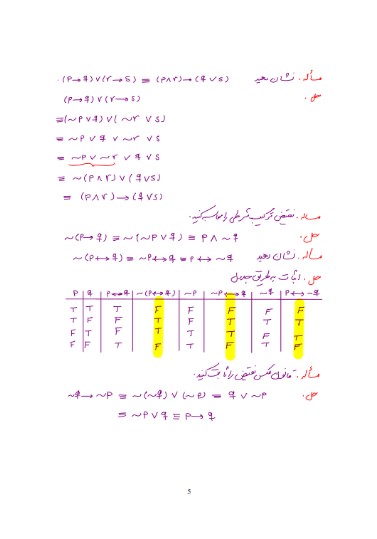 مسأله. نشان دهید (p→q)∨(r→s) ≡ (p∧r)→(q∨s).
حل. (p→q)∨(r→s)
≡(~p∨q)∨(~r∨s)
≡ ~p∨q∨~r∨s
≡ ~p∨~r∨q∨s
≡ ~(p∧r)∨(q∨s)
≡ (p∧r)→(q∨s)
مسأله. نقیض ترکیب شرطی را محاسبه کنید.
حل. ~(p→q) ≡ ~(~p∨q) ≡ p∧~q
مسأله. نشان دهید ~(p↔q) ≡ ~p↔q ≡ p↔~q
حل. اثبات به طریق جدول
p | q | p↔q | ~(p↔q) | ~p | ~p↔q | ~q | p↔~q
T | T | T | F | F | F | F | F
T | F | F | T | F | T | T | T
F | T | F | T | T | T | F | T
F | F | T | F | T | F | T | F
مسأله. قانون عکس نقیض را ثابت کنید.
حل. ~q→~p ≡ ~(~q)∨(~p) ≡ q∨~p
≡ ~p∨q ≡ p→q
5